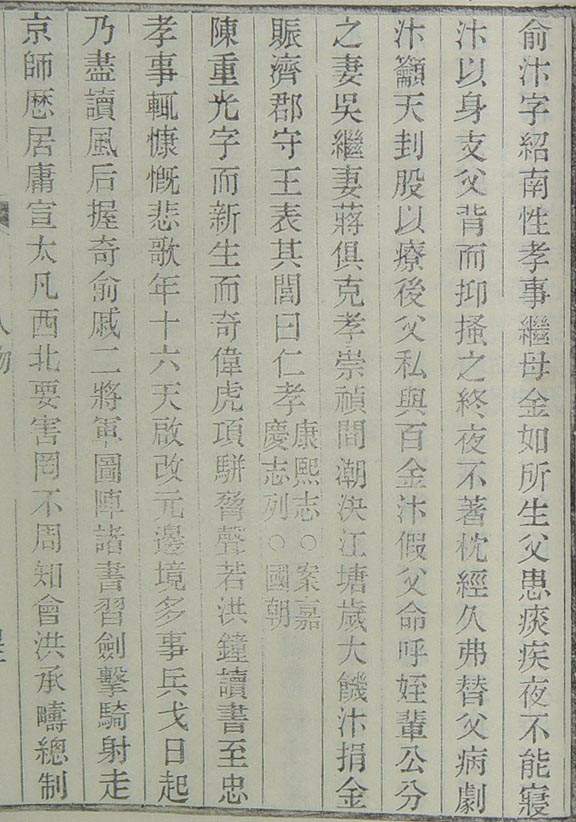 俞汴字紹南性孝事繼母金如所生父患痰疾夜不能寢
汴以身支父背而抑搔之終夜不著枕經久弗替父病劇
汴籲天刲股以療後父私與百金汴假父命呼姪輩公分
之妻吳繼妻蔣俱克孝崇禎間潮決江塘歲大饑汴捐金
賑濟郡守王表其閭曰仁孝
康熙志○案嘉
慶志列○國朝
陳重光字而新生而奇偉虎項駢脅聲若洪鐘讀書至忠
孝事輒慷慨悲歌年十六天啟改元邊境多事兵戈日起
乃盡讀風后握奇俞戚二將軍圖陣諸書習劍擊騎射走
京師厯居庸宣大凡西北要害罔不周知會洪承疇總制
人物